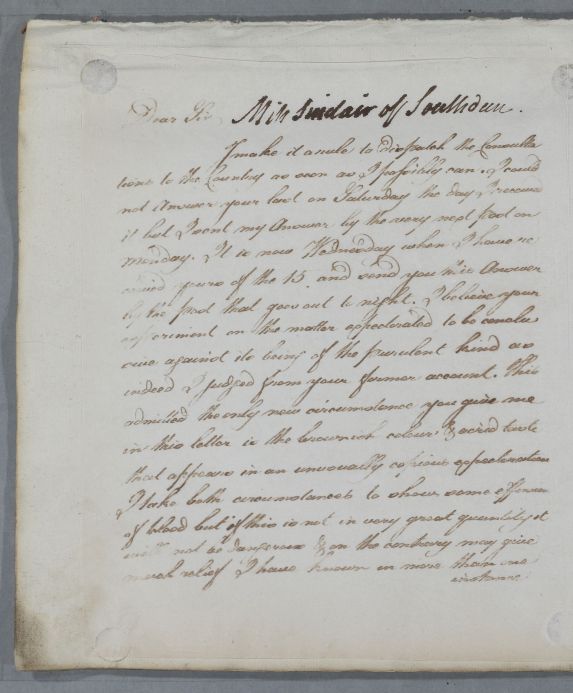 Dear Sir, Miss Sinclair of Southdun.
I make it a rule to dispatch the Consulta
tions to the Country as soon as I possibly can. I could
not answer your last on Saturday the day I received
it but I sent my Answer by the very next post on
Monday. It is now Wednesday when I have re
ceived yours of the 15 and send you this Answer
by the post that goes out to night. I believe your
experiment on the matter expectorated to be conclu
sive against its being of the purulent kind as
indeed I judged from your former account. This
admitted the only new circumstance you give me
in this letter is the brownish colour & acrid taste
that appears in an unusually copious expectoration
I take both circumstances to show some effusion
of blood but if this is not in very great quantity it
will not be dangerous & on the contrary may give
much relief I have known in more than one
instance